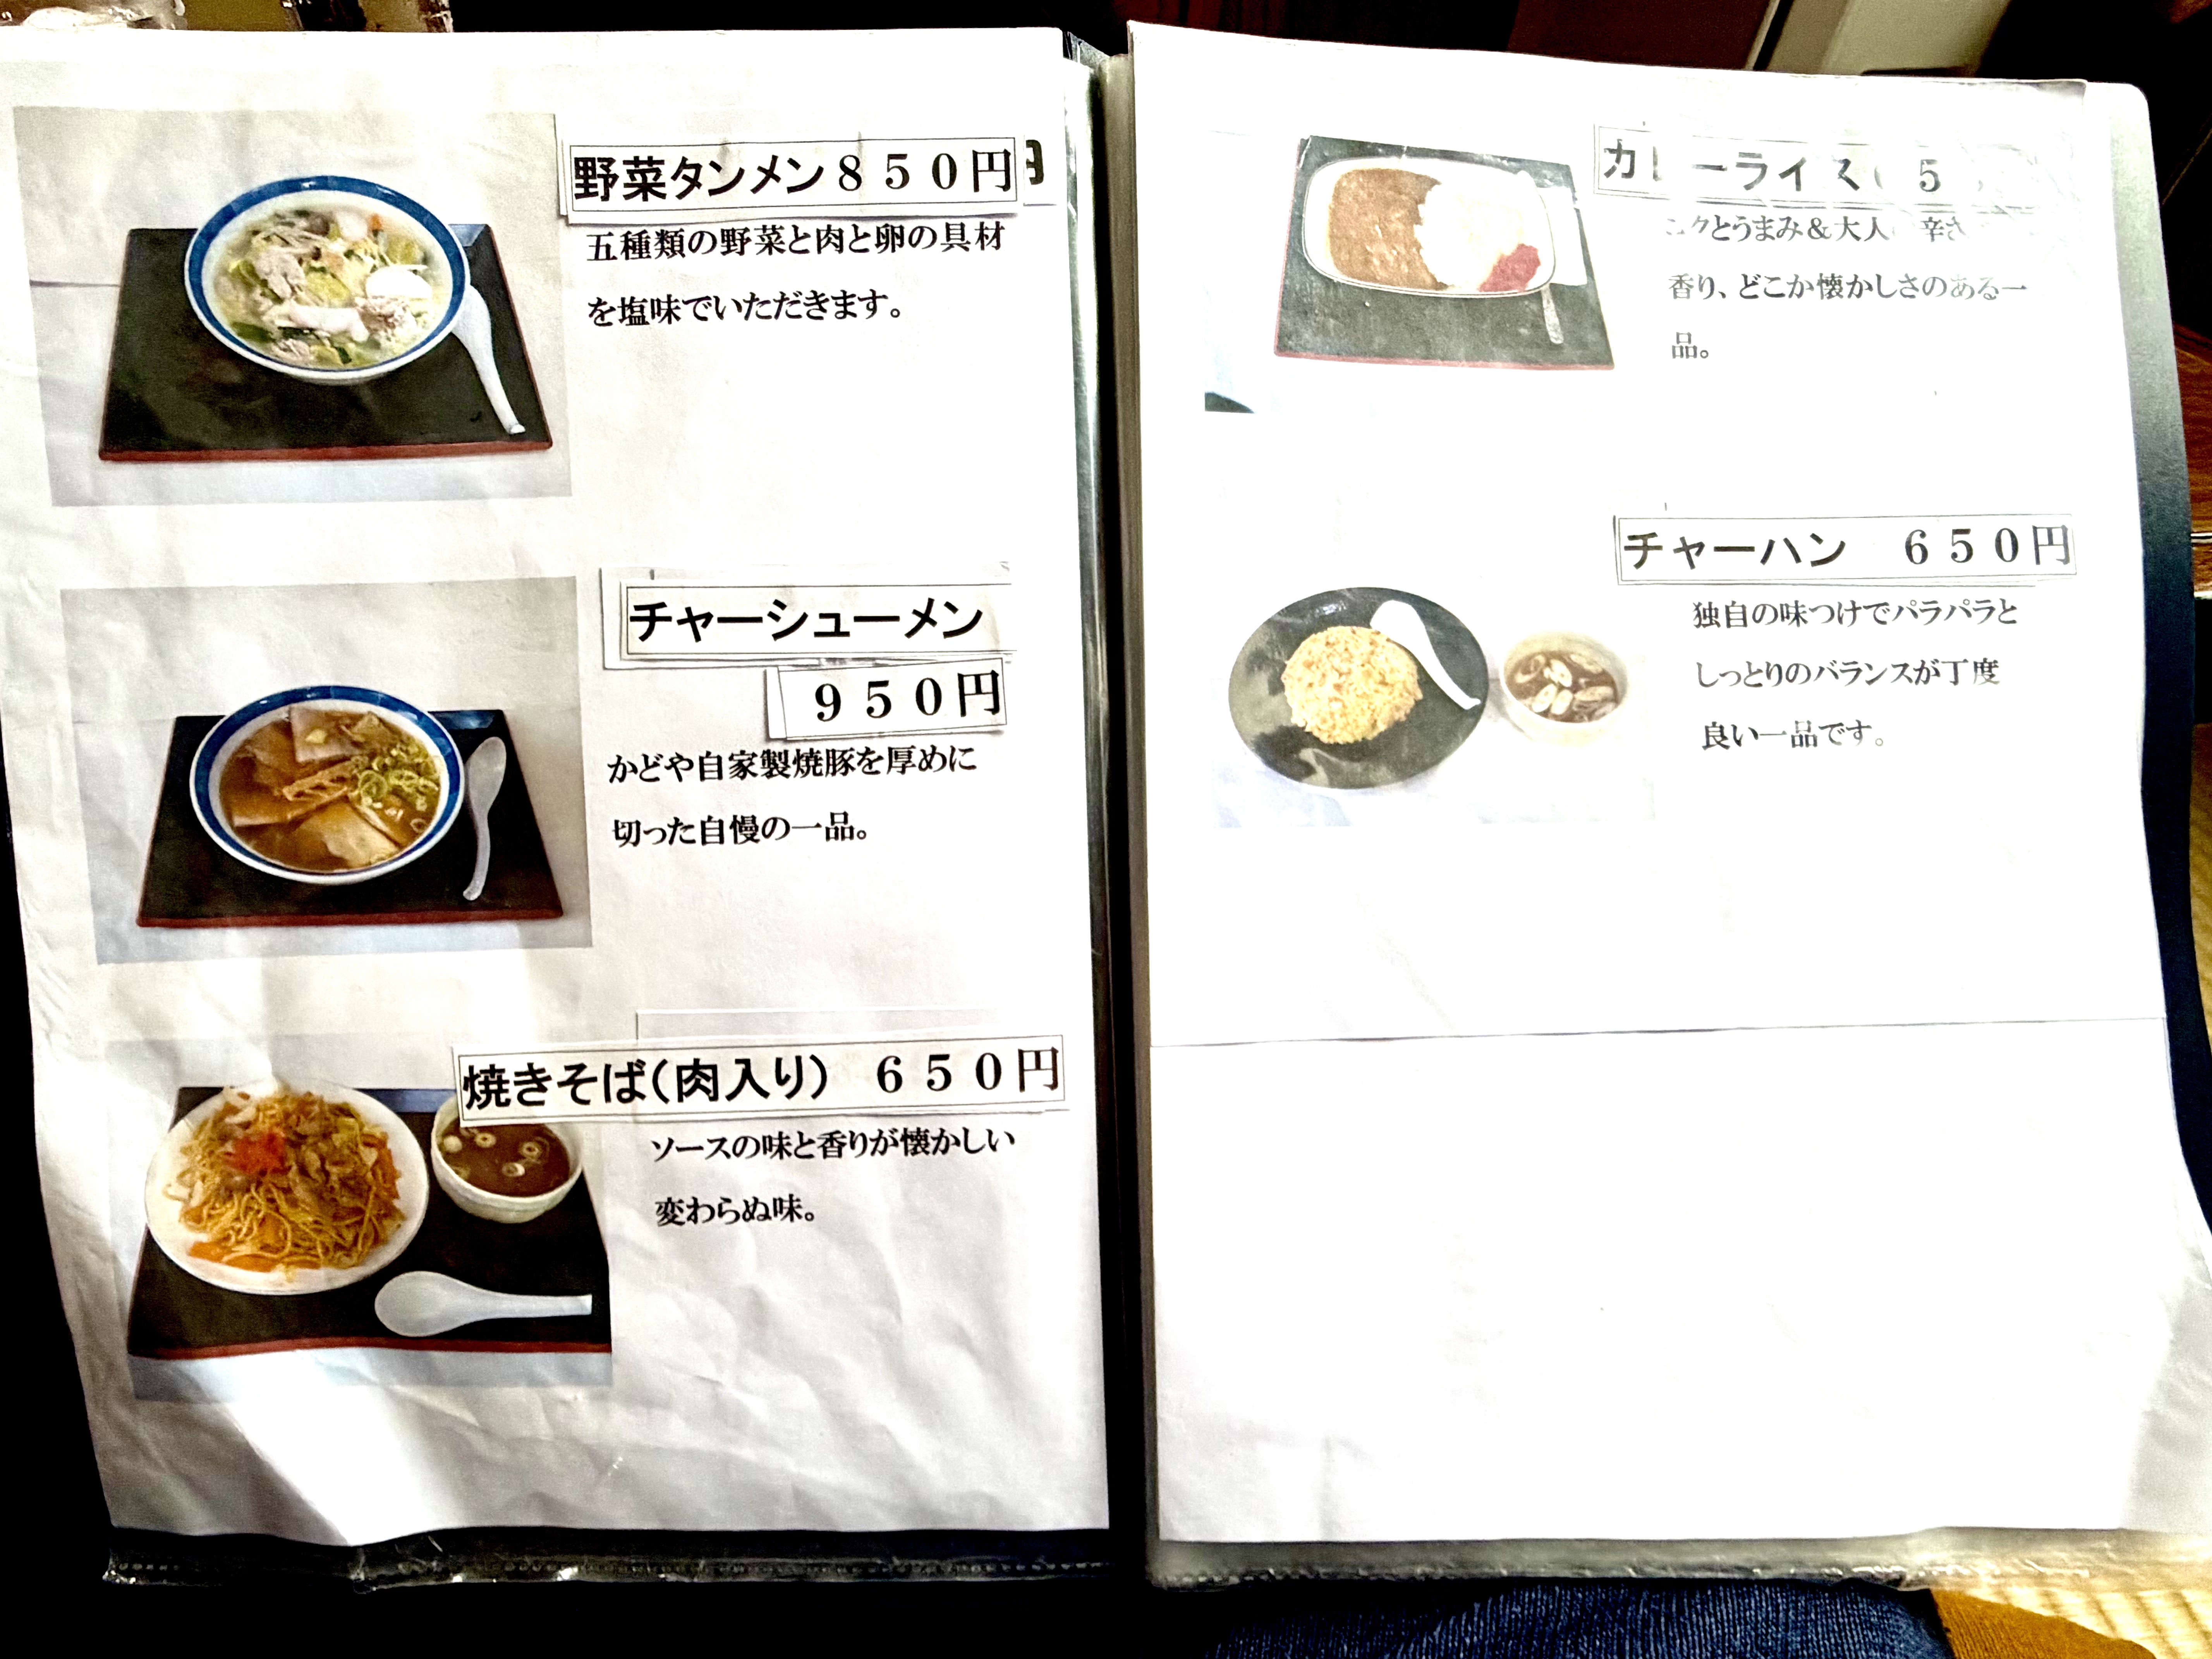 野菜タンメン８５０円
五種類の野菜と肉と卵の具材
を塩味でいただきます。
チャーシューメン
９５０円
かどや自家製焼豚を厚めに
切った自慢の一品。
焼きそば（肉入り）　６５０円
ソースの味と香りが懐かしい
変わらぬ味。
カレーライス
とうまみ＆大人 辛さ
香り、どこか懐かしさのある一
品。
チャーハン　６５０円
独自の味つけでパラパラと
しっとりのバランスが丁度
良い一品です。